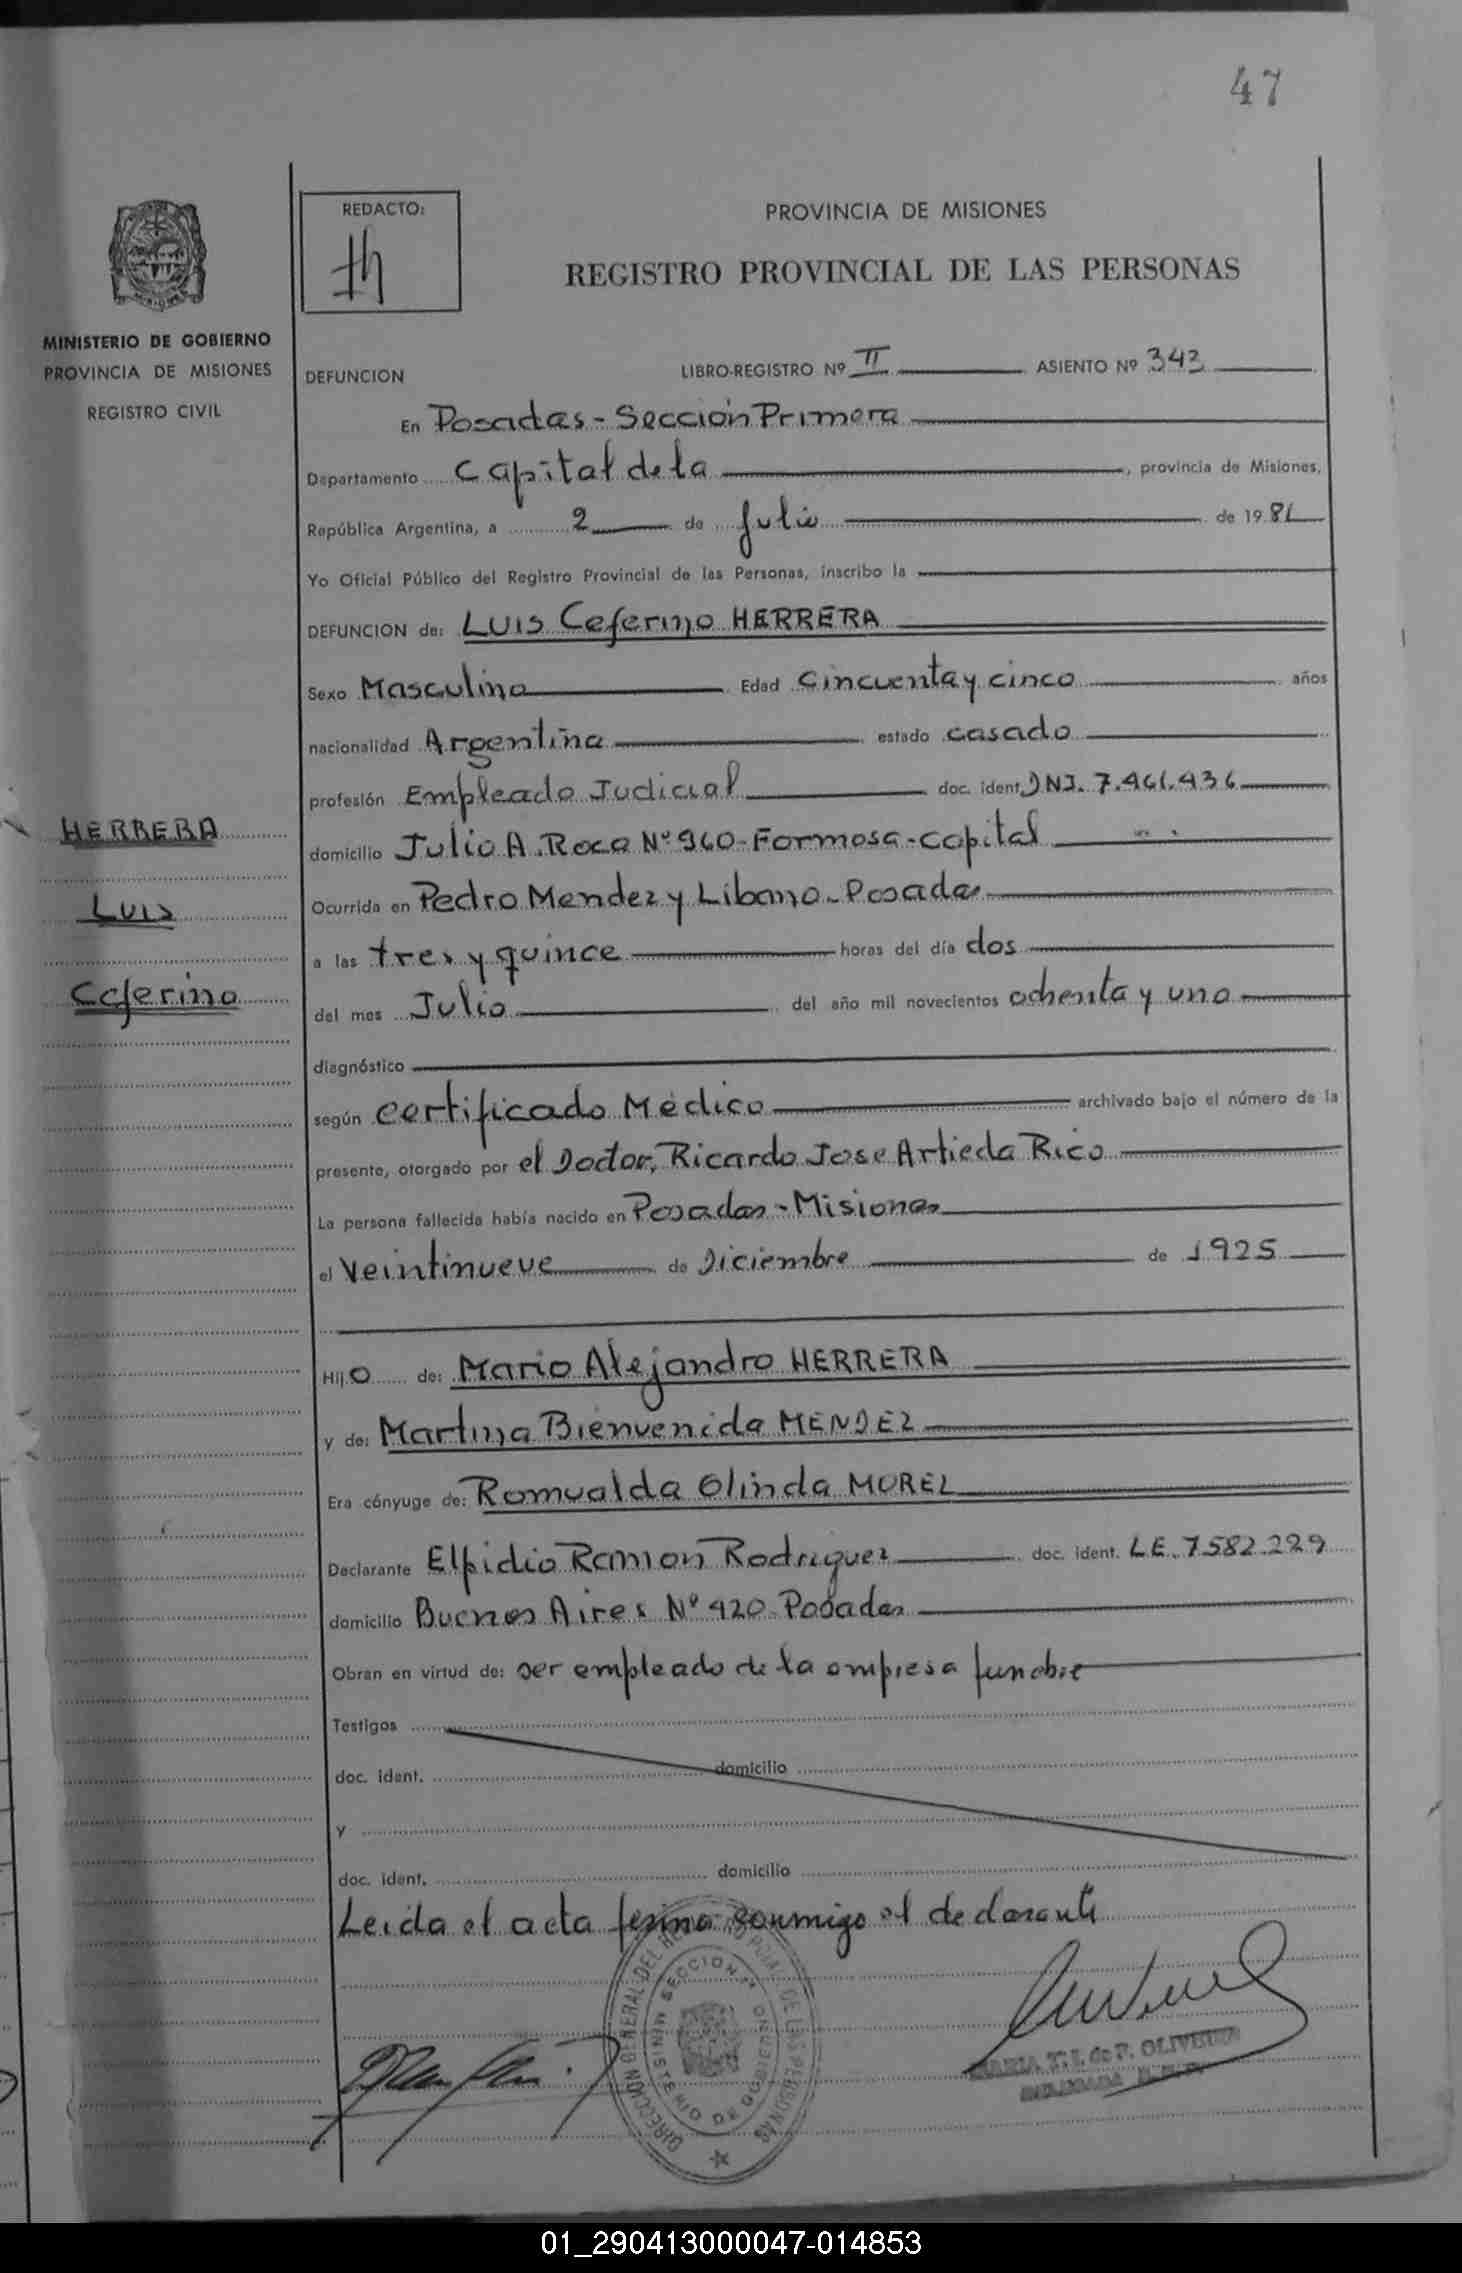 47
REDACTO:
PROVINCIA DE MISIONES
REGISTRO PROVINCIAL DE LAS PERSONAS
MINISTERIO DE GOBIERNO
PROVINCIA DE MISIONES
REGISTRO CIVIL
DEFUNCION LIBRO-REGISTRO Nº II ASIENTO Nº 343
En Posadas - Sección Primera
Departamento Capital de la, provincia de Misiones,
República Argentina, a 2 de Julio de 1981
Yo Oficial Público del Registro Provincial de las Personas, inscribo la
DEFUNCION de: LUIS Ceferino HERRERA
Sexo Masculino Edad Cincuenta y cinco años
nacionalidad Argentina estado casado
profesión Empleado Judicial doc. ident. DNI. 7.461.436
HERRERA
LUIS
Ceferino
domicilio Julio A. Roca Nº 960 - Formosa - Capital
Ocurrida en Pedro Mendez y Libano - Posadas
a las tres y quince horas del día dos
del mes Julio del año mil novecientos ochenta y uno
diagnóstico
según certificado Médico archivado bajo el número de la
presente, otorgado por el Doctor, Ricardo Jose Artieda Rico
La persona fallecida había nacido en Posadas - Misiones
el Veintinueve de Diciembre de 1925
Hijo de: Mario Alejandro HERRERA
y de: Martina Bienvenida MENDEZ
Era cónyuge de: Romualda Olinda MOREL
Declarante Elpidio Ramon Rodriguez doc. ident. LE. 7.582.229
domicilio Buenos Aires Nº 920 - Posadas
Obran en virtud de: ser empleado de la empresa funebre
Testigos
doc. ident. domicilio
y
doc. ident. domicilio
Leida el acta firma conmigo el declarante
MINISTERIO DE GOBIERNO
MARIA T. I. de F. OLIVEIRA
01_290413000047-014853